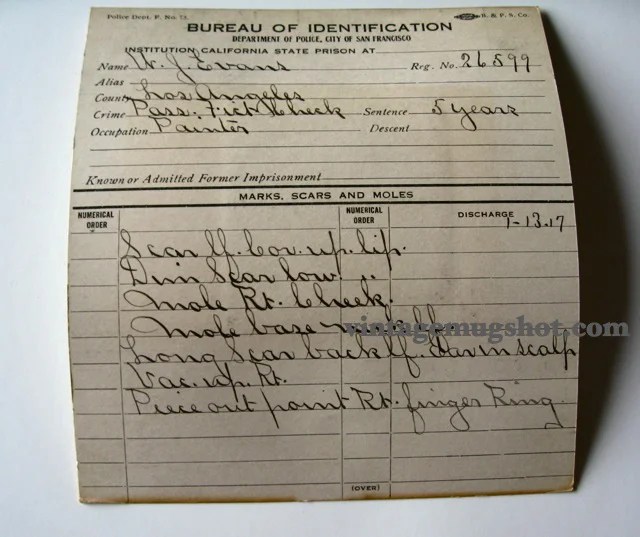 Police Dept. F. No. 73. R. & F. S. Co.
BUREAU OF IDENTIFICATION
DEPARTMENT OF POLICE, CITY OF SAN FRANCISCO
INSTITUTION CALIFORNIA STATE PRISON AT
Name W. J. Evans Reg. No. 26599
Alias
County Los Angeles
Crime Pass. Fict Check Sentence 5 years
Occupation Painter Descent
Known or Admitted Former Imprisonment
MARKS, SCARS AND MOLES
NUMERICAL ORDER NUMERICAL ORDER DISCHARGE 1-13.17
Scar lf. Cor. up. lip.
Dim Scar low. "
Mole Rt. Cheek.
Mole base
vintagemugshot.com
Long Scar back lf. Ear in scalp
Vac. up. Rt.
Piece out point Rt. finger Ring
(OVER)